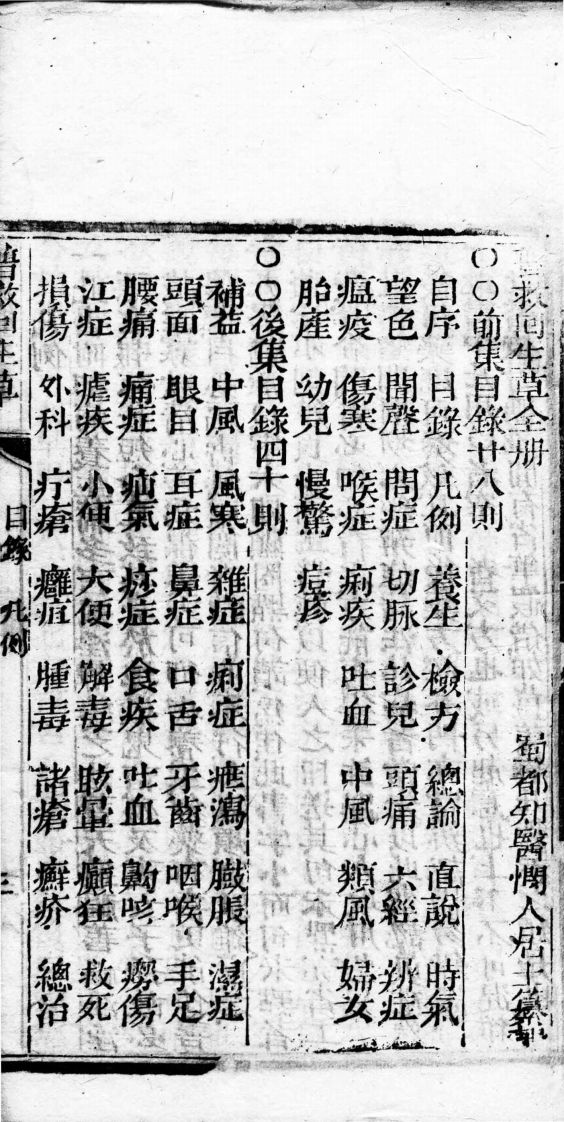 普救回生草全册
蜀都知醫憫人居士纂輯
〇〇前集目錄廿八則
自序 目錄 凡例 養生 檢方 總論 直說 時氣
望色 聞聲 問症 切脉 診兒 頭痛 六經 辨症
瘟疫 傷寒 喉症 痢疾 吐血 中風 類風 婦女
胎產 幼兒 慢驚 痘疹
〇〇後集目錄四十則
補益 中風 風寒 雜症 痢症 瀉 臌脹 濕症
頭面 眼目 耳症 鼻症 口舌 牙齒 咽喉 手足
腰痛 痛症 疝氣 痧症 食疾 吐血 齁咳 癆傷
江症 瘧疾 小便 大便 解毒 眩暈 癲狂 救死
損傷 外科 疔瘡 癰疽 腫毒 諸瘡 癬疥 總治
普救回生草
目錄 凡例
三